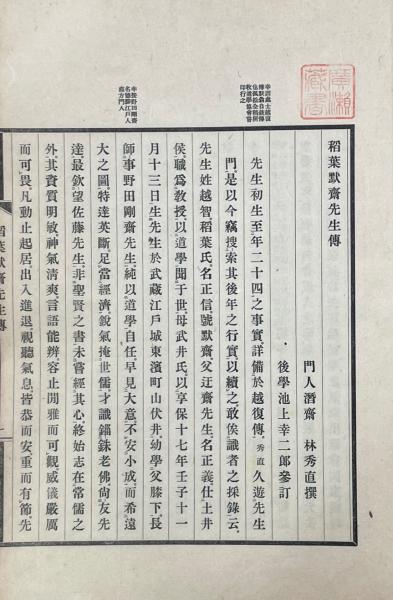 稻葉默齋先生傳
門人潛齋 林秀直撰
後學池上幸二郎參訂
先生初生至年二十四之事實、詳備於越復傳、秀直久遊先生
門、是以今竊搜索其後年之行實、以續之、敢俟識者之採錄云、
先生姓越智、稻葉氏、名正信、號默齋、父迂齋先生、名正義、仕土井
侯、職爲教授、以道學聞于世、母武井氏、以享保十七年壬子十一
月十三日生先生於武藏江戶城東濱町山伏井、幼學父膝下、長
師事野田剛齋先生、純以道學自任、早見大意、不安小成、而希遠
大之圖、特達英斷、足當經濟、銳氣掩世儒、才識錙銖老佛、尙友先
達、最欽望佐藤先生、非聖賢之書、未嘗經其心、終始志在常儒之
外、其資質明敏、神氣清爽、言語能辨、容止閒雅而可觀、威儀嚴厲
而可畏、凡動止起居、出入進退、視聽氣息、皆恭而安、重而有節、先
幸按野田剛齋
名德勝江戶人
直方門人
印行之
稻葉默齋先生傳
廣瀨
藏書